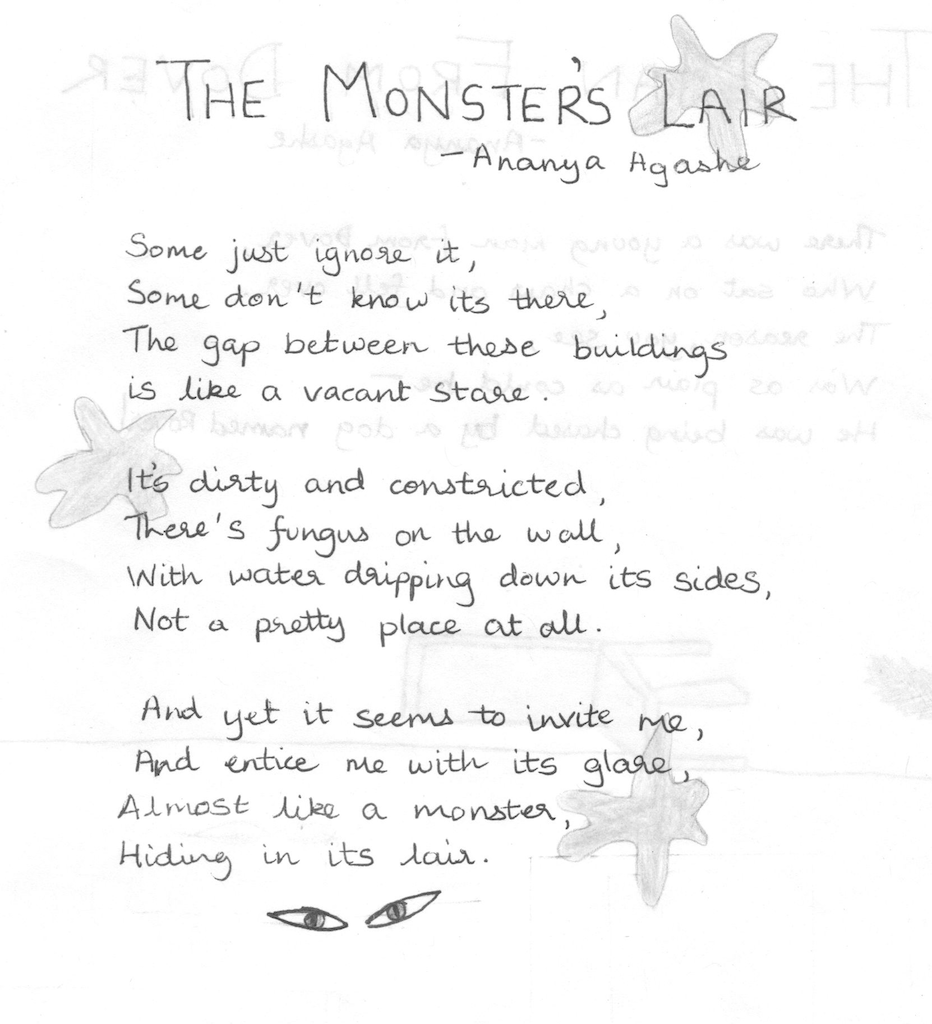 THE MONSTER'S LAIR
-Ananya Agashe
Some just ignore it,
Some don't know its there,
The gap between these buildings
is like a vacant stare.
It's dirty and constricted,
There's fungus on the wall,
With water dripping down its sides,
Not a pretty place at all.
And yet it seems to invite me,
And entice me with its glare,
Almost like a monster,
Hiding in its lair.